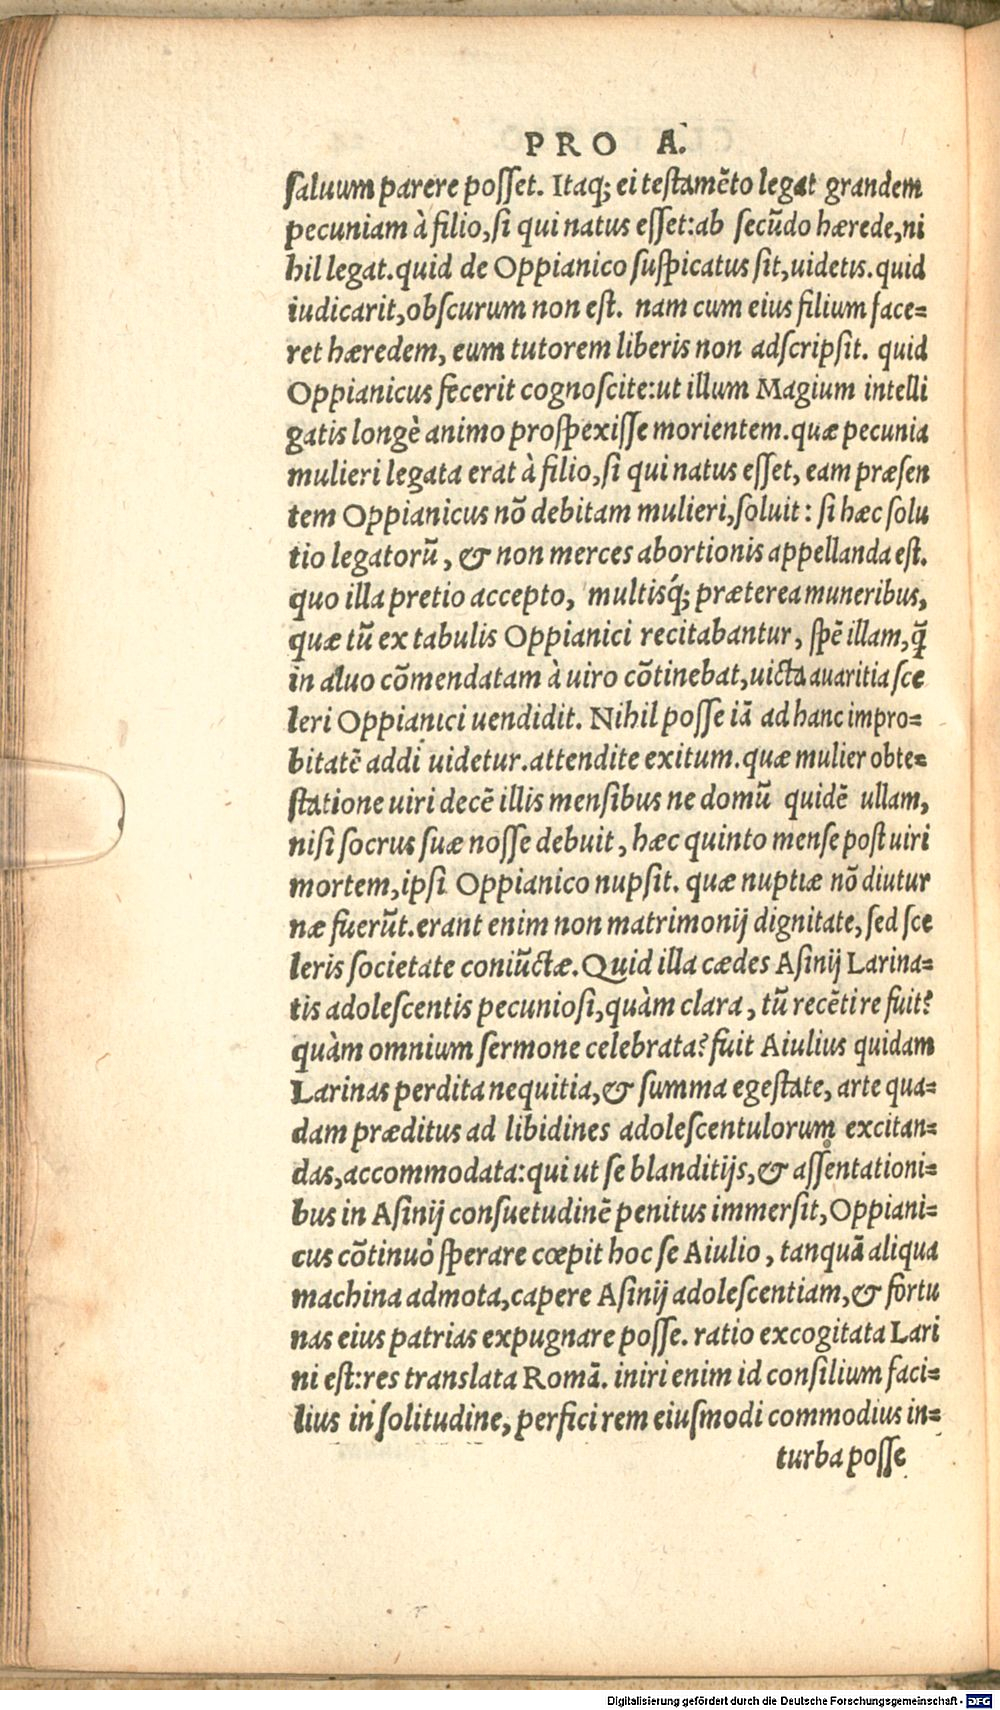 PRO A.
saluum parere posset. Itaq; ei testamẽto legat grandem
pecuniam à filio, si qui natus esset: ab secũdo hærede, ni
hil legat. quid de Oppianico suspicatus sit, uidetis. quid
iudicarit, obscurum non est. nam cum eius filium face=
ret hæredem, eum tutorem liberis non adscripsit. quid
Oppianicus fecerit cognoscite: ut illum Magium intelli
gatis longè animo prospexisse morientem. quæ pecunia
mulieri legata erat à filio, si qui natus esset, eam præsen
tem Oppianicus nõ debitam mulieri, soluit: si hæc solu
tio legatorũ, & non merces abortionis appellanda est.
quo illa pretio accepto, multisq́; præterea muneribus,
quæ tũ ex tabulis Oppianici recitabantur, spẽ illam, q̃
in aluo cõmendatam à uiro cõtinebat, uicta auaritia sce
leri Oppianici uendidit. Nihil posse iã ad hanc impro=
bitatẽ addi uidetur. attendite exitum. quæ mulier obte=
statione uiri decẽ illis mensibus ne domũ quidẽ ullam,
nisi socrus suæ nosse debuit, hæc quinto mense post uiri
mortem, ipsi Oppianico nupsit. quæ nuptiæ nõ diutur
næ fuerũt. erant enim non matrimonij dignitate, sed sce
leris societate coniũctæ. Quid illa cædes Asinij Larina=
tis adolescentis pecuniosi, quàm clara, tũ recẽti re fuit?
quàm omnium sermone celebrata? fuit Aiulius quidam
Larinas perdita nequitia, & summa egestate, arte qua=
dam præditus ad libidines adolescentulorum excitan=
das, accommodata: qui ut se blanditijs, & assentationi=
bus in Asinij consuetudinẽ penitus immersit, Oppiani=
cus cõtinuò sperare cœpit hoc se Aiulio, tanquã aliqua
machina admota, capere Asinij adolescentiam, & fortu
nas eius patrias expugnare posse. ratio excogitata Lari
ni est: res translata Romã. iniri enim id consilium faci=
lius in solitudine, perfici rem eiusmodi commodius in=
turba posse
Digitalisierung gefördert durch die Deutsche Forschungsgemeinschaft - DFG